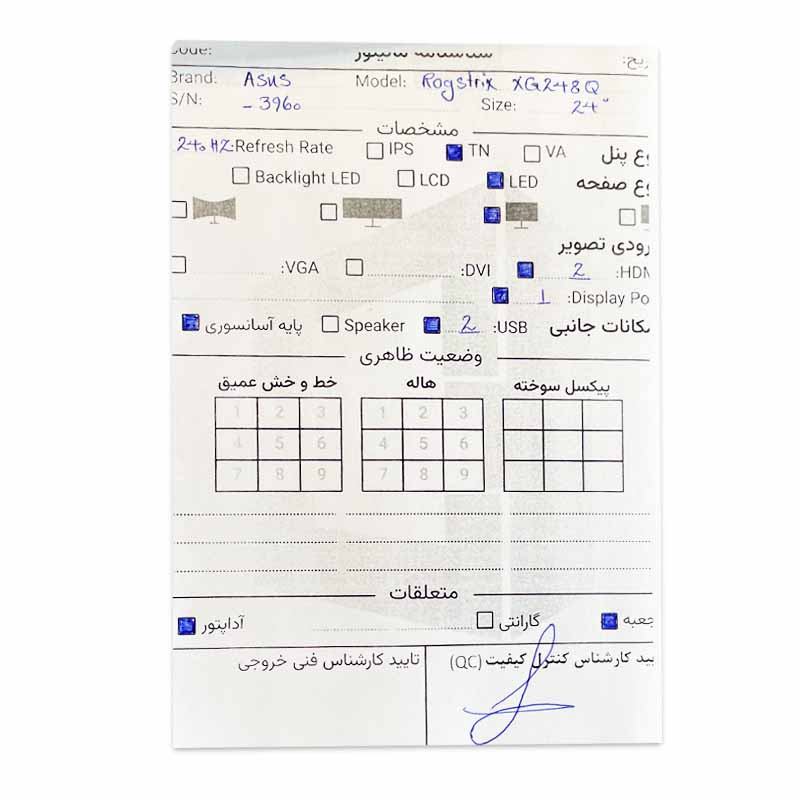 شناسنامه مانیتور
Brand: Asus Model: Rogstrix XG248Q
S/N: - 3960 Size: 24"
مشخصات
240 HZ :Refresh Rate IPS TN VA وع پنل
Backlight LED LCD LED وع صفحه
رودی تصویر
:VGA :DVI 2 :HDM
1 :Display Po
پایه آسانسوری Speaker 2 :USB مکانات جانبی
وضعیت ظاهری
خط و خش عمیق هاله پیکسل سوخته
1 2 3 1 2 3
4 5 6 4 5 6
7 8 9 7 8 9
متعلقات
آداپتور گارانتی جعبه
تایید کارشناس فنی خروجی یید کارشناس کنترل کیفیت (QC)